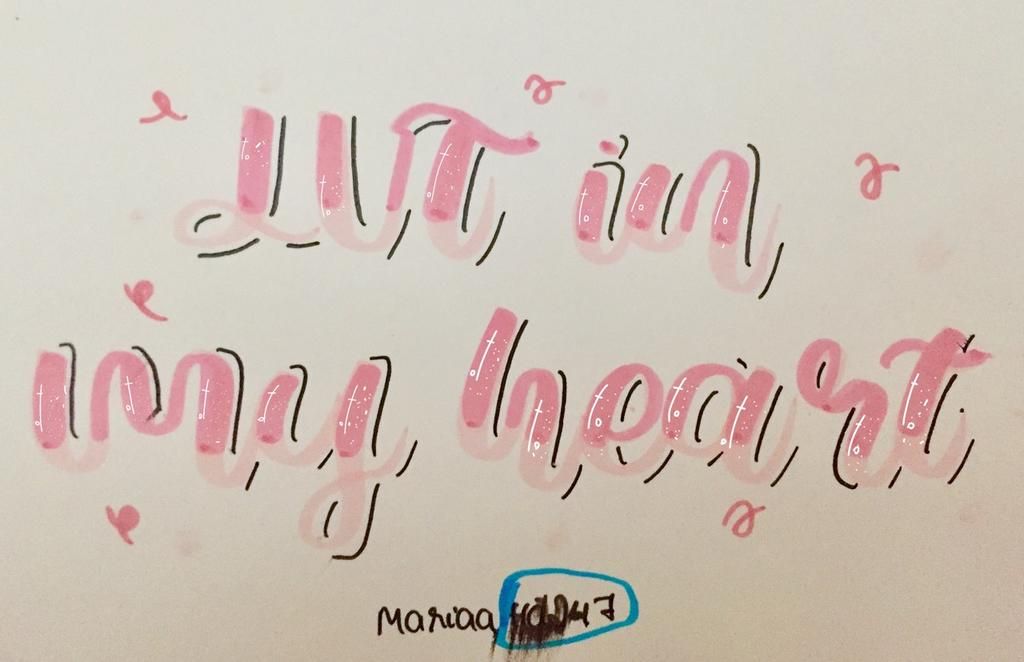 LUT in
my heart
Mariaa